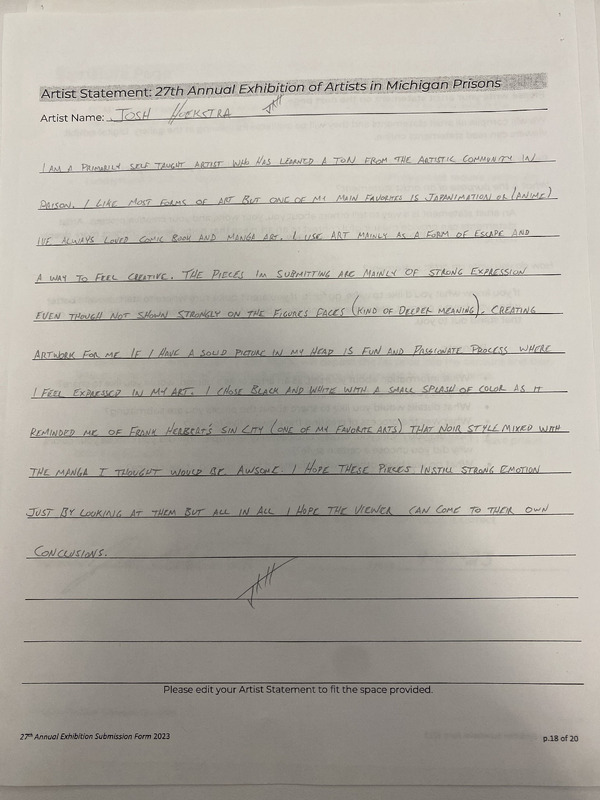 Artist Statement: 27th Annual Exhibition of Artists in Michigan Prisons
Artist Name: JOSH HOEKSTRA JKH
I AM A PRIMARILY SELF TAUGHT ARTIST WHO HAS LEARNED A TON FROM THE ARTISTIC COMMUNITY IN
PRISON. I LIKE MOST FORMS OF ART BUT ONE OF MY MAIN FAVORITES IS JAPANIMATION OR (ANIME)
IVE ALWAYS LOVED COMIC BOOK AND MANGA ART. I USE ART MAINLY AS A FORM OF ESCAPE AND
A WAY TO FEEL CREATIVE. THE PIECES IM SUBMITTING ARE MAINLY OF STRONG EXPRESSION
EVEN THOUGH NOT SHOWN STRONGLY ON THE FIGURES FACES (KIND OF DEEPER MEANING). CREATING
ARTWORK FOR ME IF I HAVE A SOLID PICTURE IN MY HEAD IS FUN AND PASSIONATE PROCESS WHERE
I FEEL EXPRESSED IN MY ART. I CHOSE BLACK AND WHITE WITH A SMALL SPLASH OF COLOR AS IT
REMINDED ME OF FRANK HERBERT'S SIN CITY (ONE OF MY FAVORITE ARTS) THAT NOIR STYLE MIXED WITH
THE MANGA I THOUGHT WOULD BE AWSOME. I HOPE THESE PIECES INSTILL STRONG EMOTION
JUST BY LOOKING AT THEM BUT ALL IN ALL I HOPE THE VIEWER CAN COME TO THEIR OWN
CONCLUSIONS.
JKH
Please edit your Artist Statement to fit the space provided.
27th Annual Exhibition Submission Form 2023
p.18 of 20